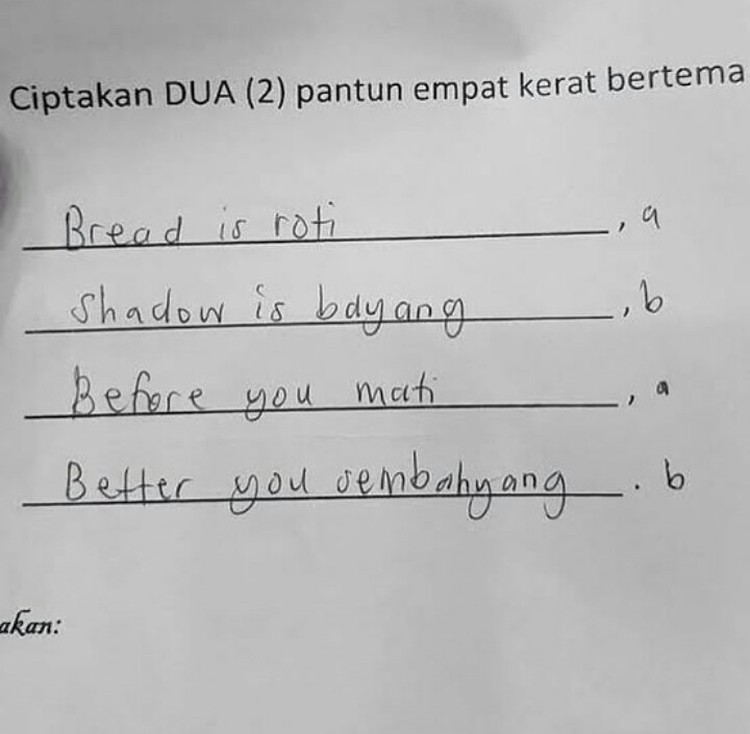 Ciptakan DUA (2) pantun empat kerat bertema
Bread is roti , a
Shadow is bayang , b
Before you mati , a
Better you sembahyang . b
akan: